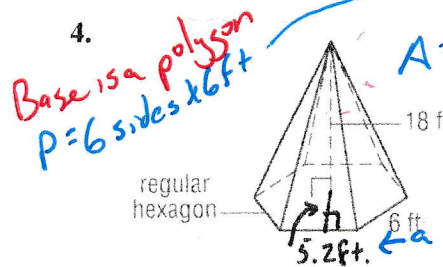 4.
Base is a polygon
P=6 sides x 6ft
A=
18 f
regular
hexagon
h
6 ft
5.2ft. ← a